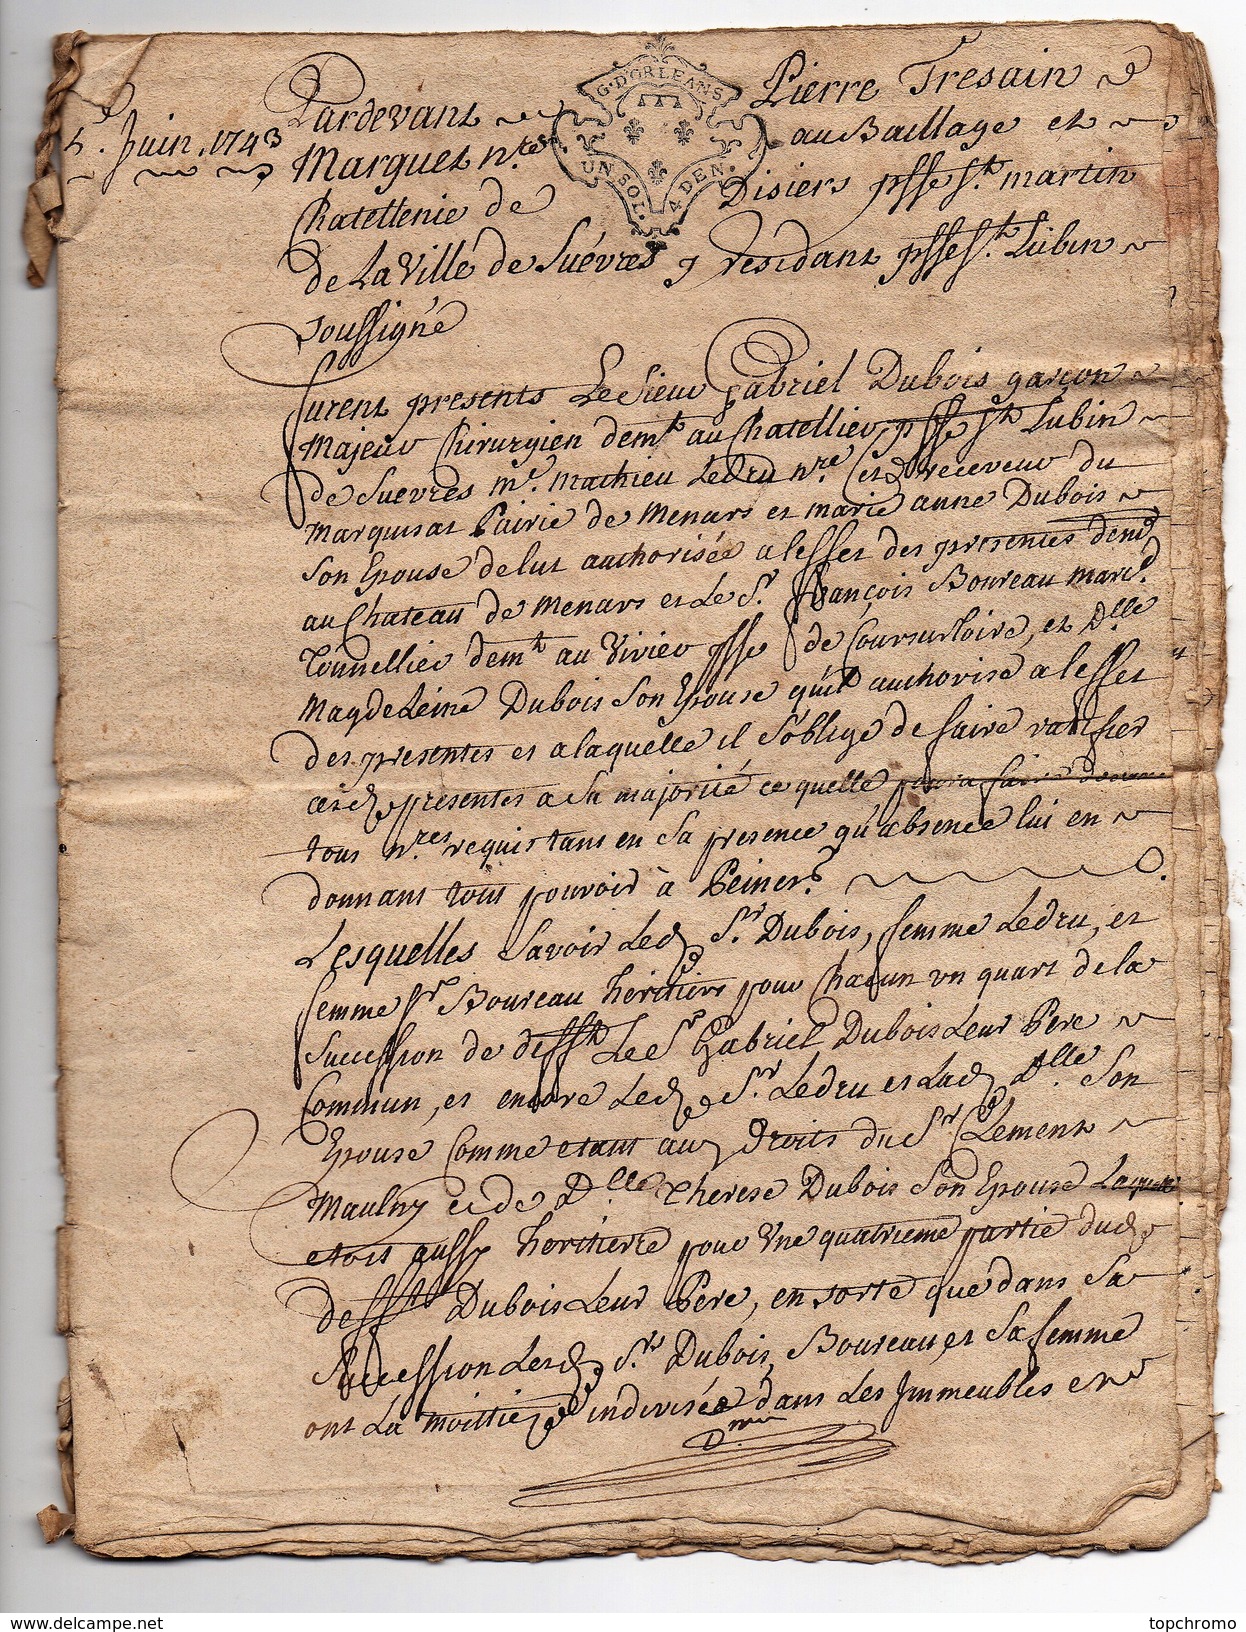 5. Juin. 1743
Pardevant Pierre Tresain
G. D'ORLEANS
UN SOL. 4 DEN.
Marguet n.re au Baillage et
Chatellenie de Disiers psse St. martin
de La Ville de Suévres y residant psse St. Lubin
soussigné
furent presents Le Sieur Gabriel Dubois garçon
Majeur Chirurgien demt. au Chatellier psse St. Lubin
de Suevres me. Mathieu Ledru nre. et receveur du
Marquisat Pairie de Menars et marie anne Dubois
son Epouse de lui authorisée a lesset des presentes demt
au Chateau de Menars et Le Sr. françois Boureau Marcd.
Tonnellier demt au Vivier psse de Coursurloire, et Dlle
Magdeleine Dubois son Epouse quil authorise a lesset
des presentes et a laquelle il soblige de faire ratifier
cesd. presentes a sa majorité ce quelle poura faire devant
tous nres requis tant en sa presence qu'absence lui en
donnant tout pouvoir à Peine
Lesquelles savoir Led. Sr. Dubois, femme Ledru, et
femme Sr. Boureau heritiers pour Chacun un quart de la
succession de defft. Le Sr Gabriel Dubois Leur Pere
Commun, et encore Led. Sr. Ledru et Lad. Dlle son
Epouse Comme etant aux droits du Sr Clement
Maulny et de Dlle Therese Dubois son Epouse Laquelle
etoit aussy heritiere pour une quatrieme partie dud.
defft. Dubois Leur Pere, en sorte que dans sa
succession Lesd. Srs Dubois, Boureau et sa femme
ont La moittié indivisée dans Les Immeubles et
topchromo